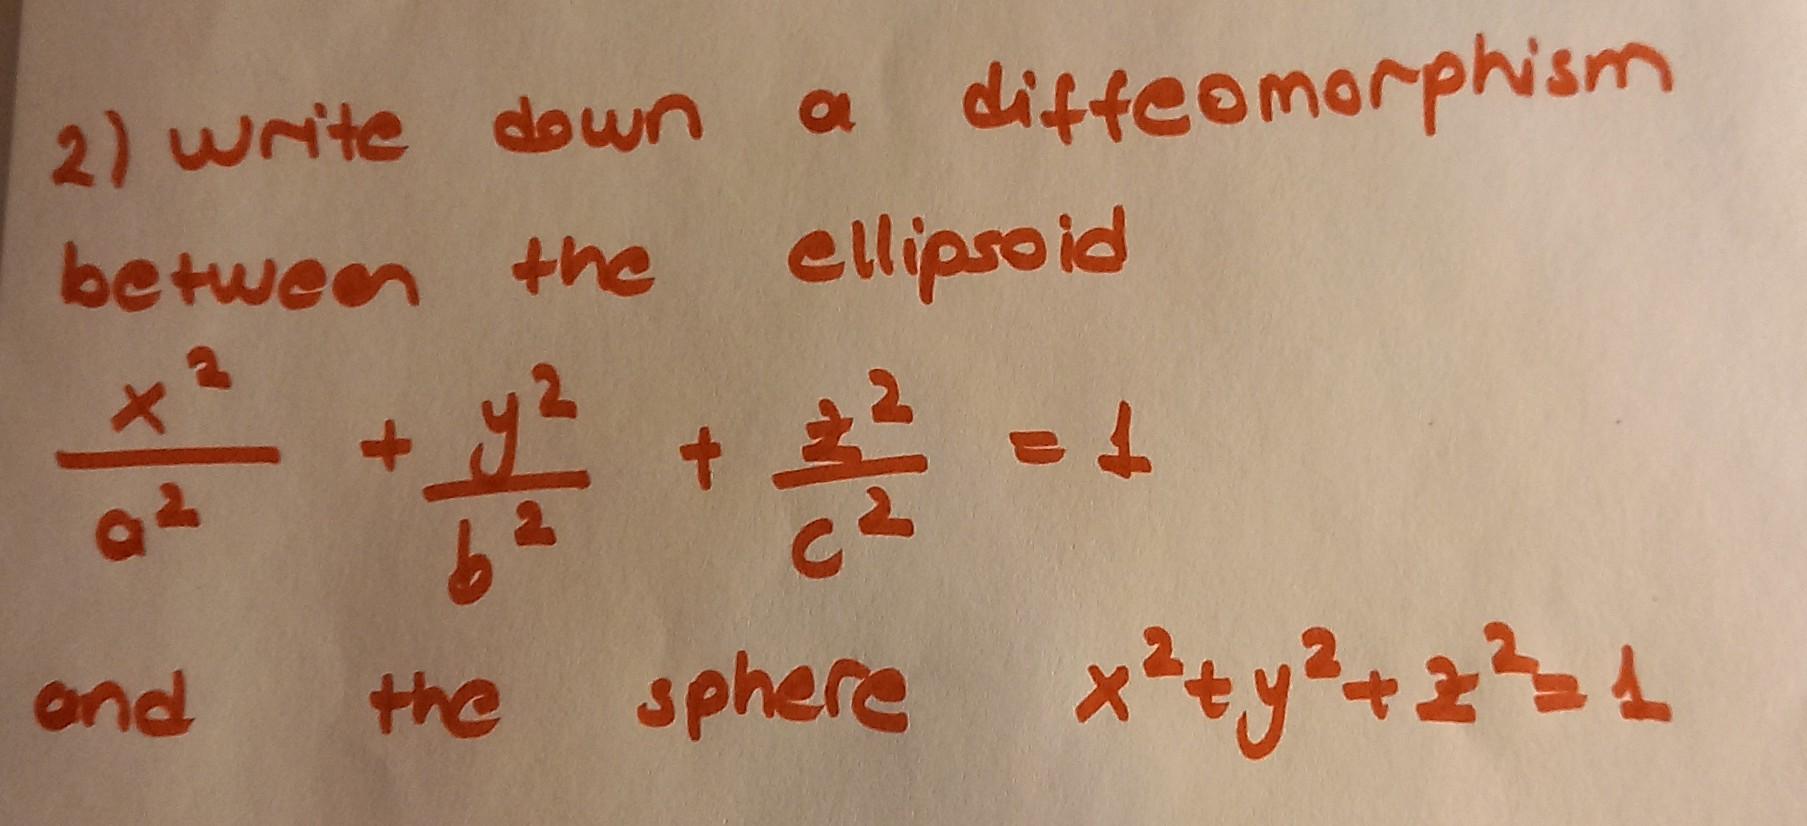 2) write down a diffeomorphism
between the ellipsoid
x²/a² + y²/b² + z²/c² = 1
and the sphere x²+y²+z²=1